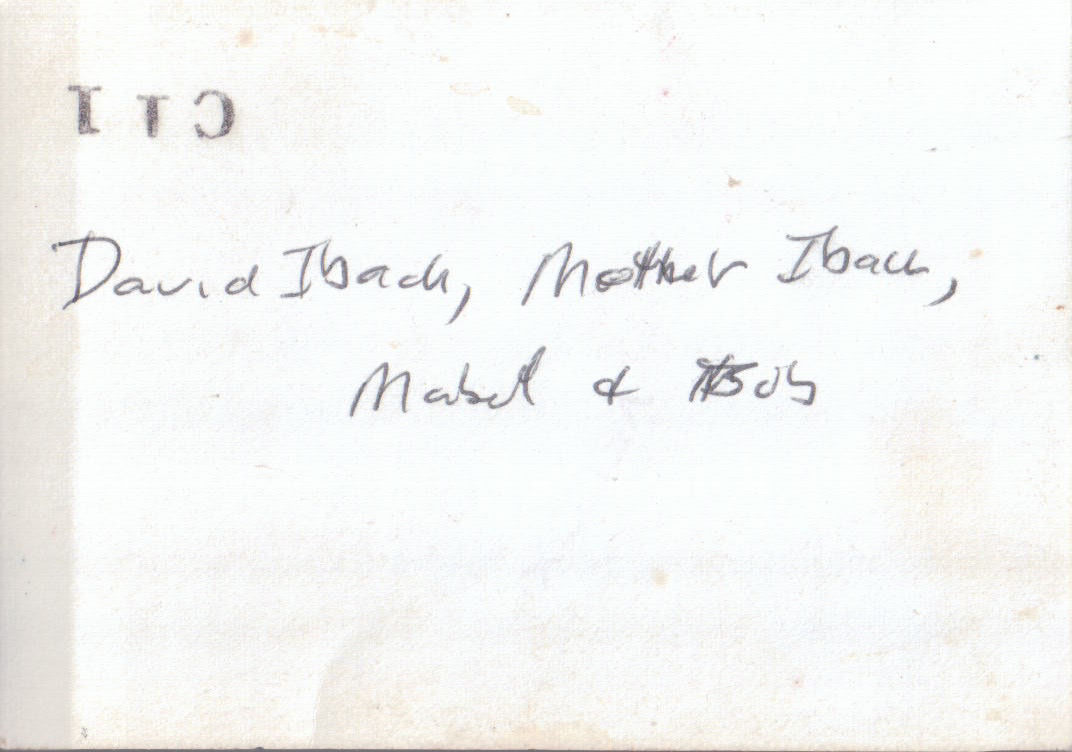 David Ibach, Mother Ibach,
Mabel & Bob